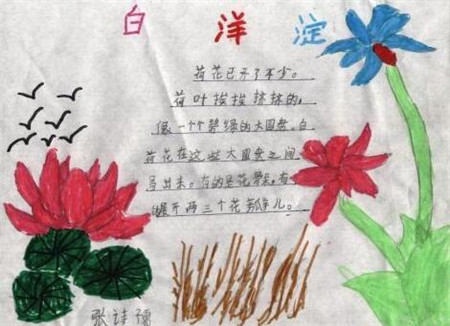 白洋淀
荷花已开了不少。
荷叶挨挨挤挤的，
像一个个碧绿的大圆盘。白
荷花在这些大圆盘之间
冒出来。有的是花骨朵，有
的展开两三个花瓣儿。
张诗